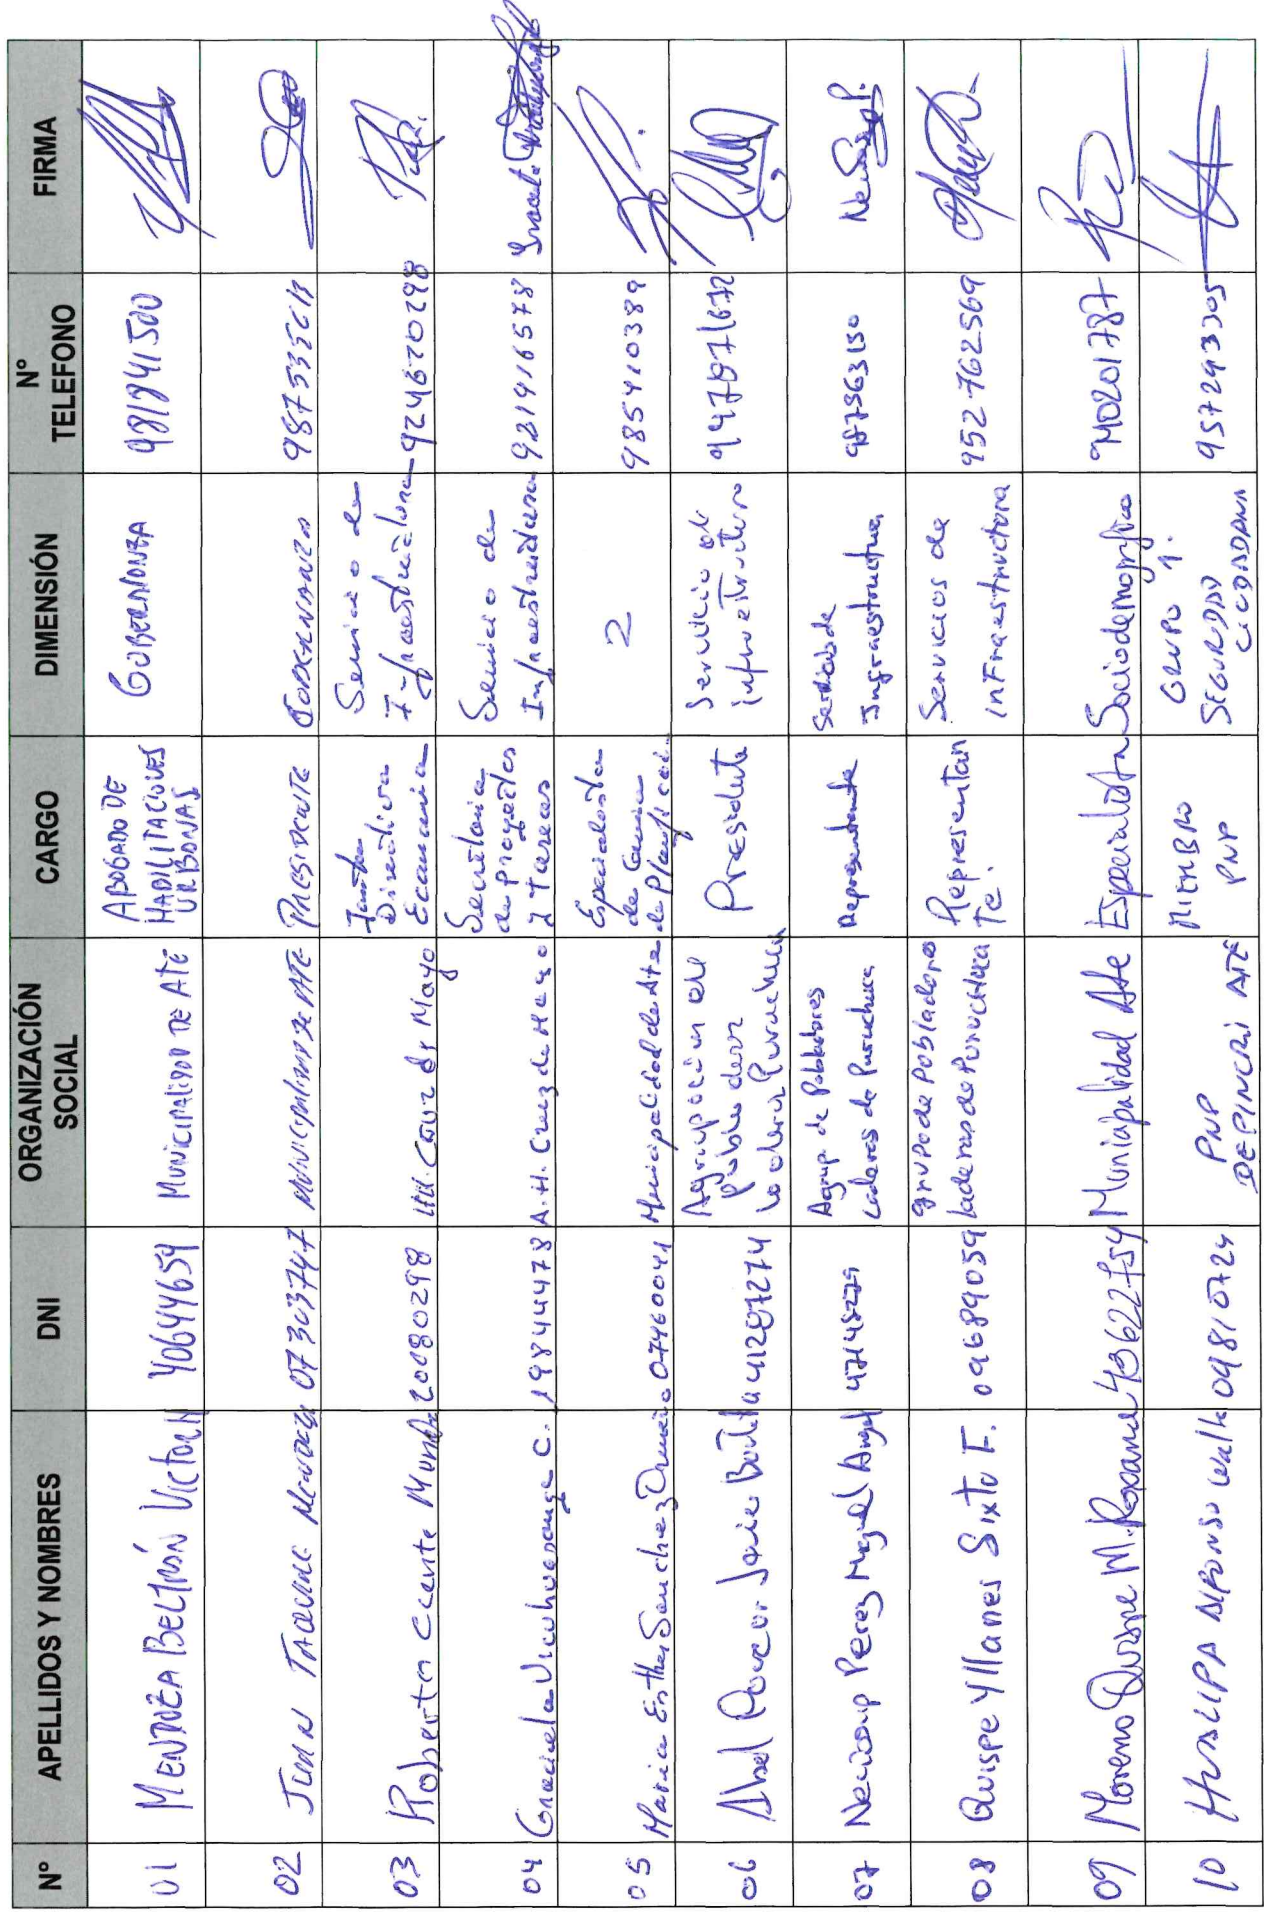 N° APELLIDOS Y NOMBRES DNI ORGANIZACIÓN SOCIAL CARGO DIMENSIÓN N° TELEFONO FIRMA
01 MENDOZA BELTRÁN VICTOR H 40644659 MUNICIPALIDAD DE ATE ABOGADO DE HABILITACIONES URBANAS GOBERNANZA 981841500
02 JUAN MENDOZA 07303747 MUNICIPALIDAD DE ATE PRESIDENTE GOBERNANZA
03 Roberto Clemente Munoz 20080298 Cruz de Mayo Junta Directiva Economia Servicio de Infraestructura 924670298
04 Graciela C. 19844478 A.H. Cruz de Mayo Secretaria de proyectos y tareas Servicio de Infraestructura 921916578
05 Maria Esther Sanchez 07460041 Municipalidad de Ate Especialista de 2 985410389
06 Abel Javier 41287274 Agrupación de pobladores laderas Puruchuca Presidente Servicio de infraestructura 947871672
07 Perez Miguel Angel Agrup. de Pobladores Laderas de Puruchuca Representante Servicios de Infraestructura 987363150
08 Quispe Yllanes Sixto F. 09689059 grupo de Pobladores laderas de Puruchuca Representante Servicios de infraestructura 952762569
09 Moreno Quispe M. Roxana Municipalidad Ate Especialista Sociodemografico
10 HUALLPA ALFONSO 09810724 PNP DEPINCRI ATE MIEMBRO PNP GRUPO 1. SEGURIDAD CIUDADANA 957293305